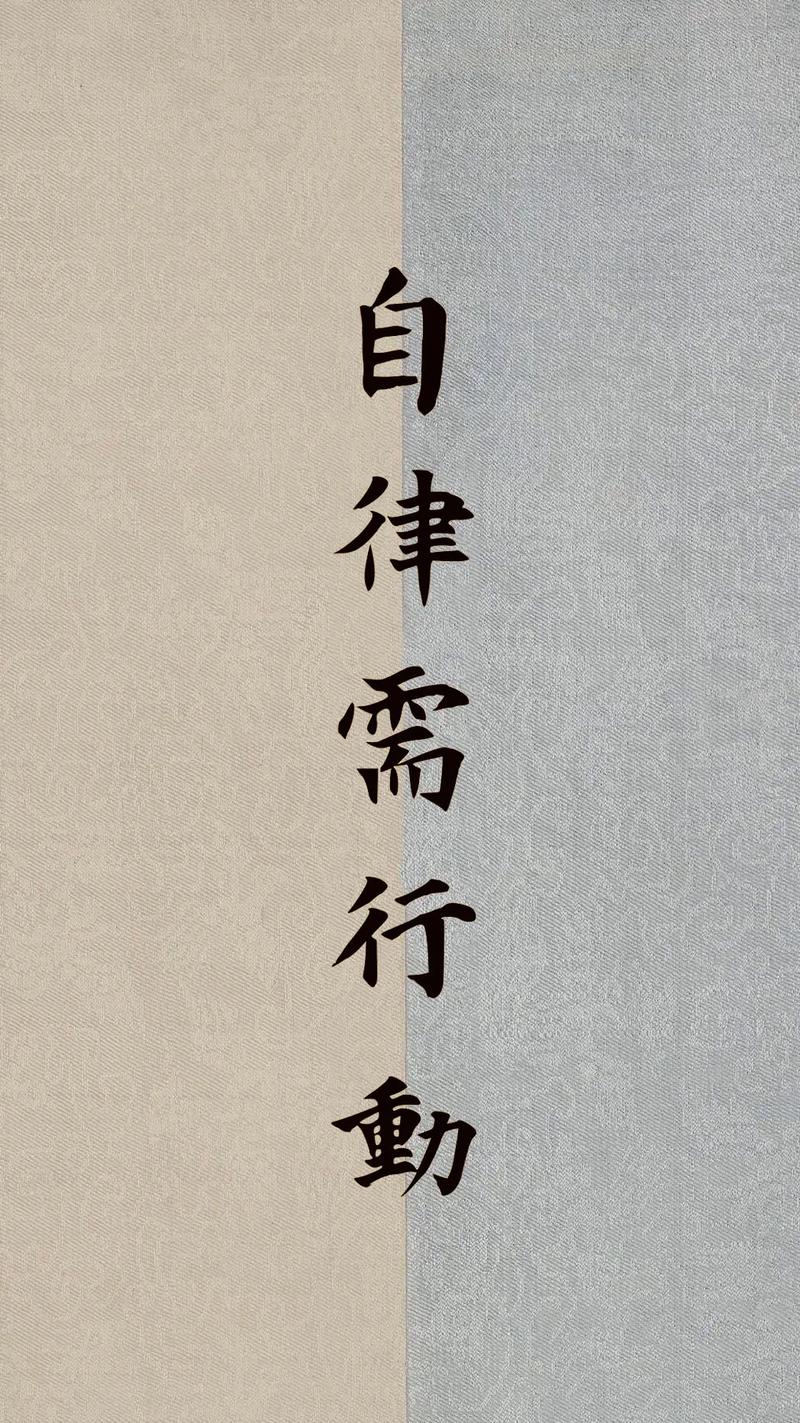 自律需行動